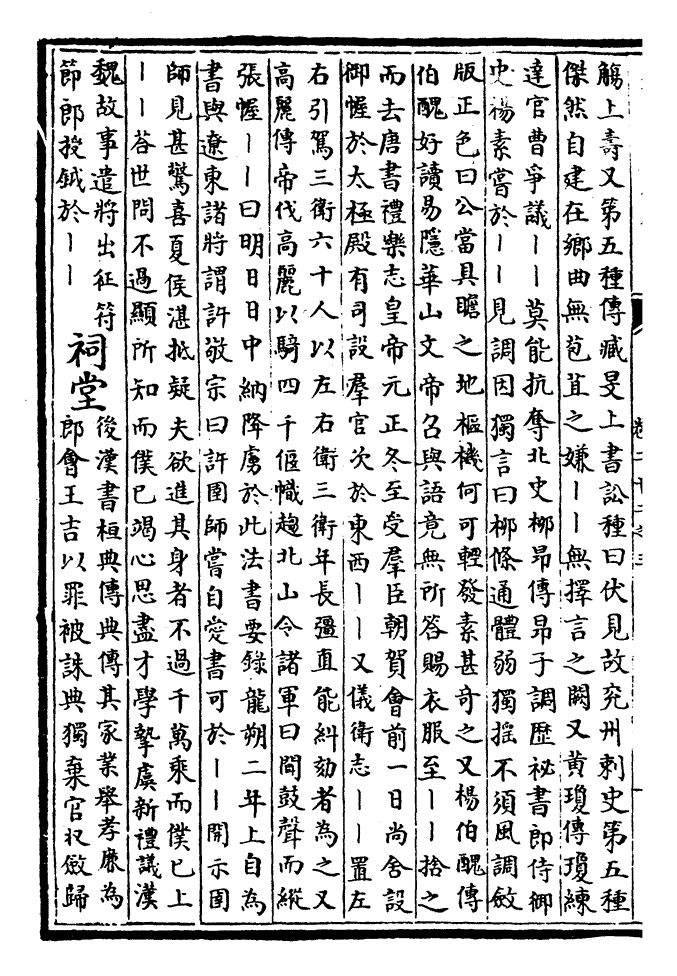 觴上壽又第五種傳臧旻上書訟種曰伏見故兖州刺史第五種
傑然自建在鄉曲無苞苴之嫌丨丨無擇言之闕又黃瓊傳瓊練
達官曹爭議丨丨莫能抗奪北史柳昂傳昂子調歴祕書郎侍御
史楊素嘗於丨丨見調因獨言曰柳條通體弱獨揺不須風調斂
版正色曰公當具瞻之地樞機何可輕發素甚奇之又楊伯醜傳
伯醜好讀易隱華山文帝召與語竟無所答賜衣服至丨丨捨之
而去唐書禮樂志皇帝元正冬至受羣臣朝賀會前一日尚舍設
御幄於太極殿有司設羣官次於東西丨丨又儀衛志丨丨置左
右引駕三衛六十人以左右衛三衛年長彊直能糾劾者為之又
高麗傳帝伐高麗以騎四千偃幟趨北山令諸軍曰聞鼓聲而縱
張幄丨丨曰明日日中納降虜於此法書要錄龍朔二年上自為
書與遼東諸將謂許敬宗曰許圉師嘗自愛書可於丨丨開示圉
師見甚驚喜夏侯湛抵疑夫欲進其身者不過千萬乘而僕已上
丨丨荅世問不過顯所知而僕已竭心思盡才學摯虞新禮議漢
魏故事遣將出征符
節郎授鉞於丨丨
祠堂
後漢書桓典傳典傳其家業舉孝廉為
郎會王吉以罪被誅典獨棄官收斂歸